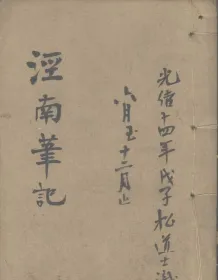 光緒十四年戊子松道士
六月至十二月止
涇南筆記